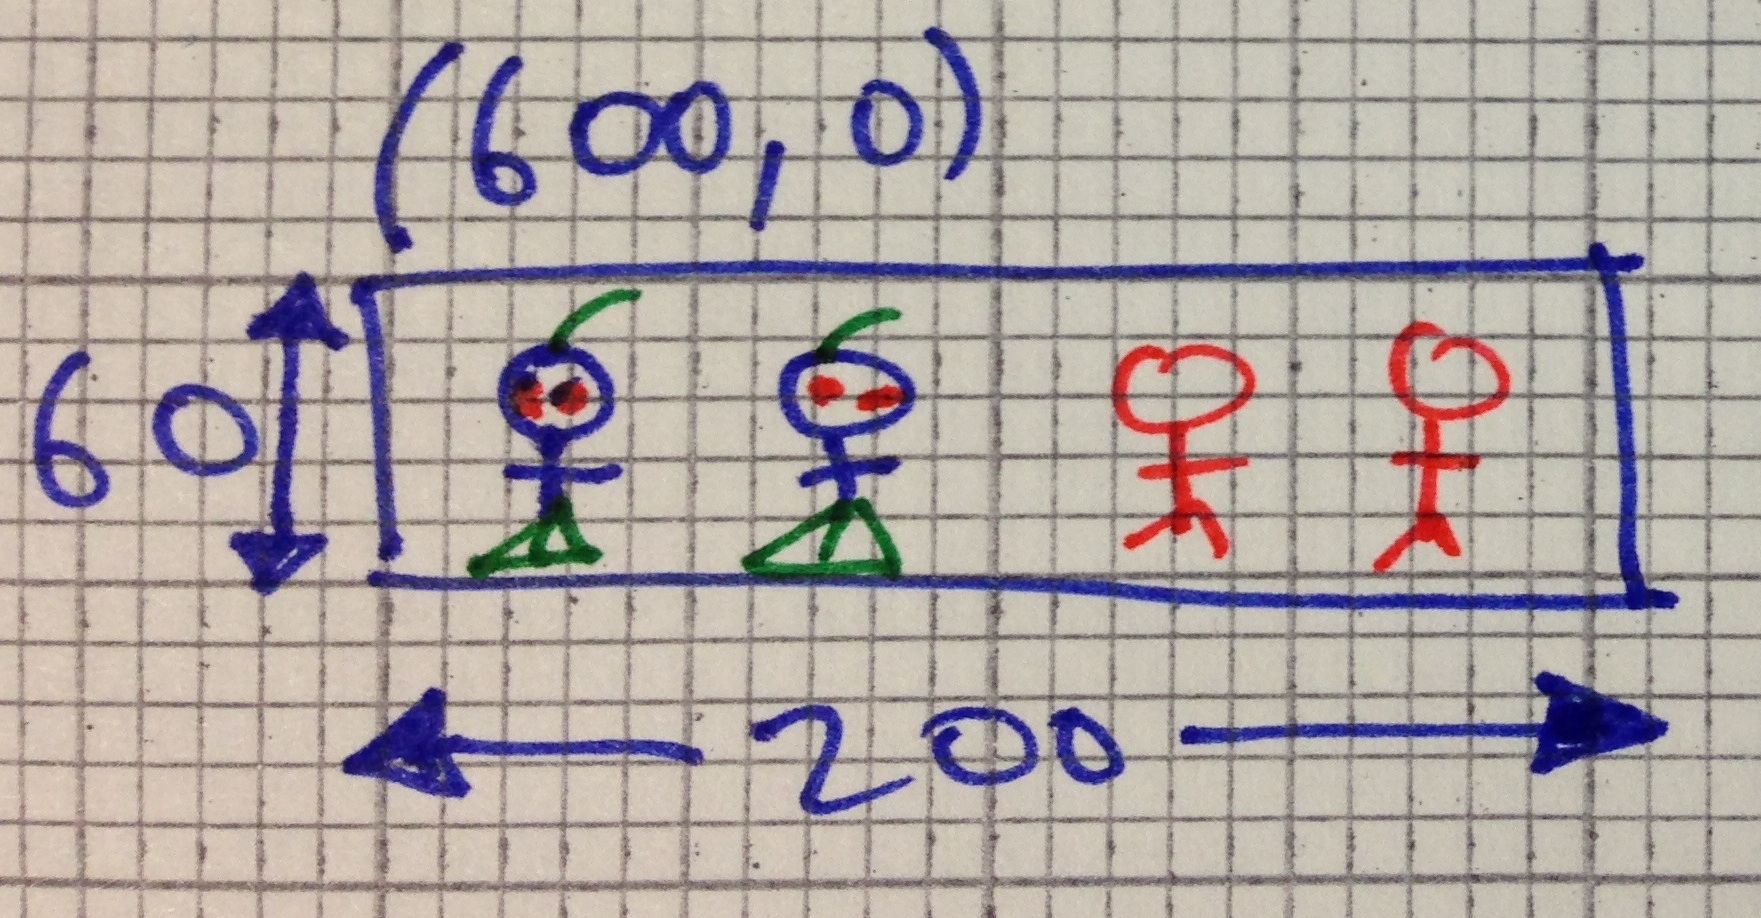 (600,0)
60
200